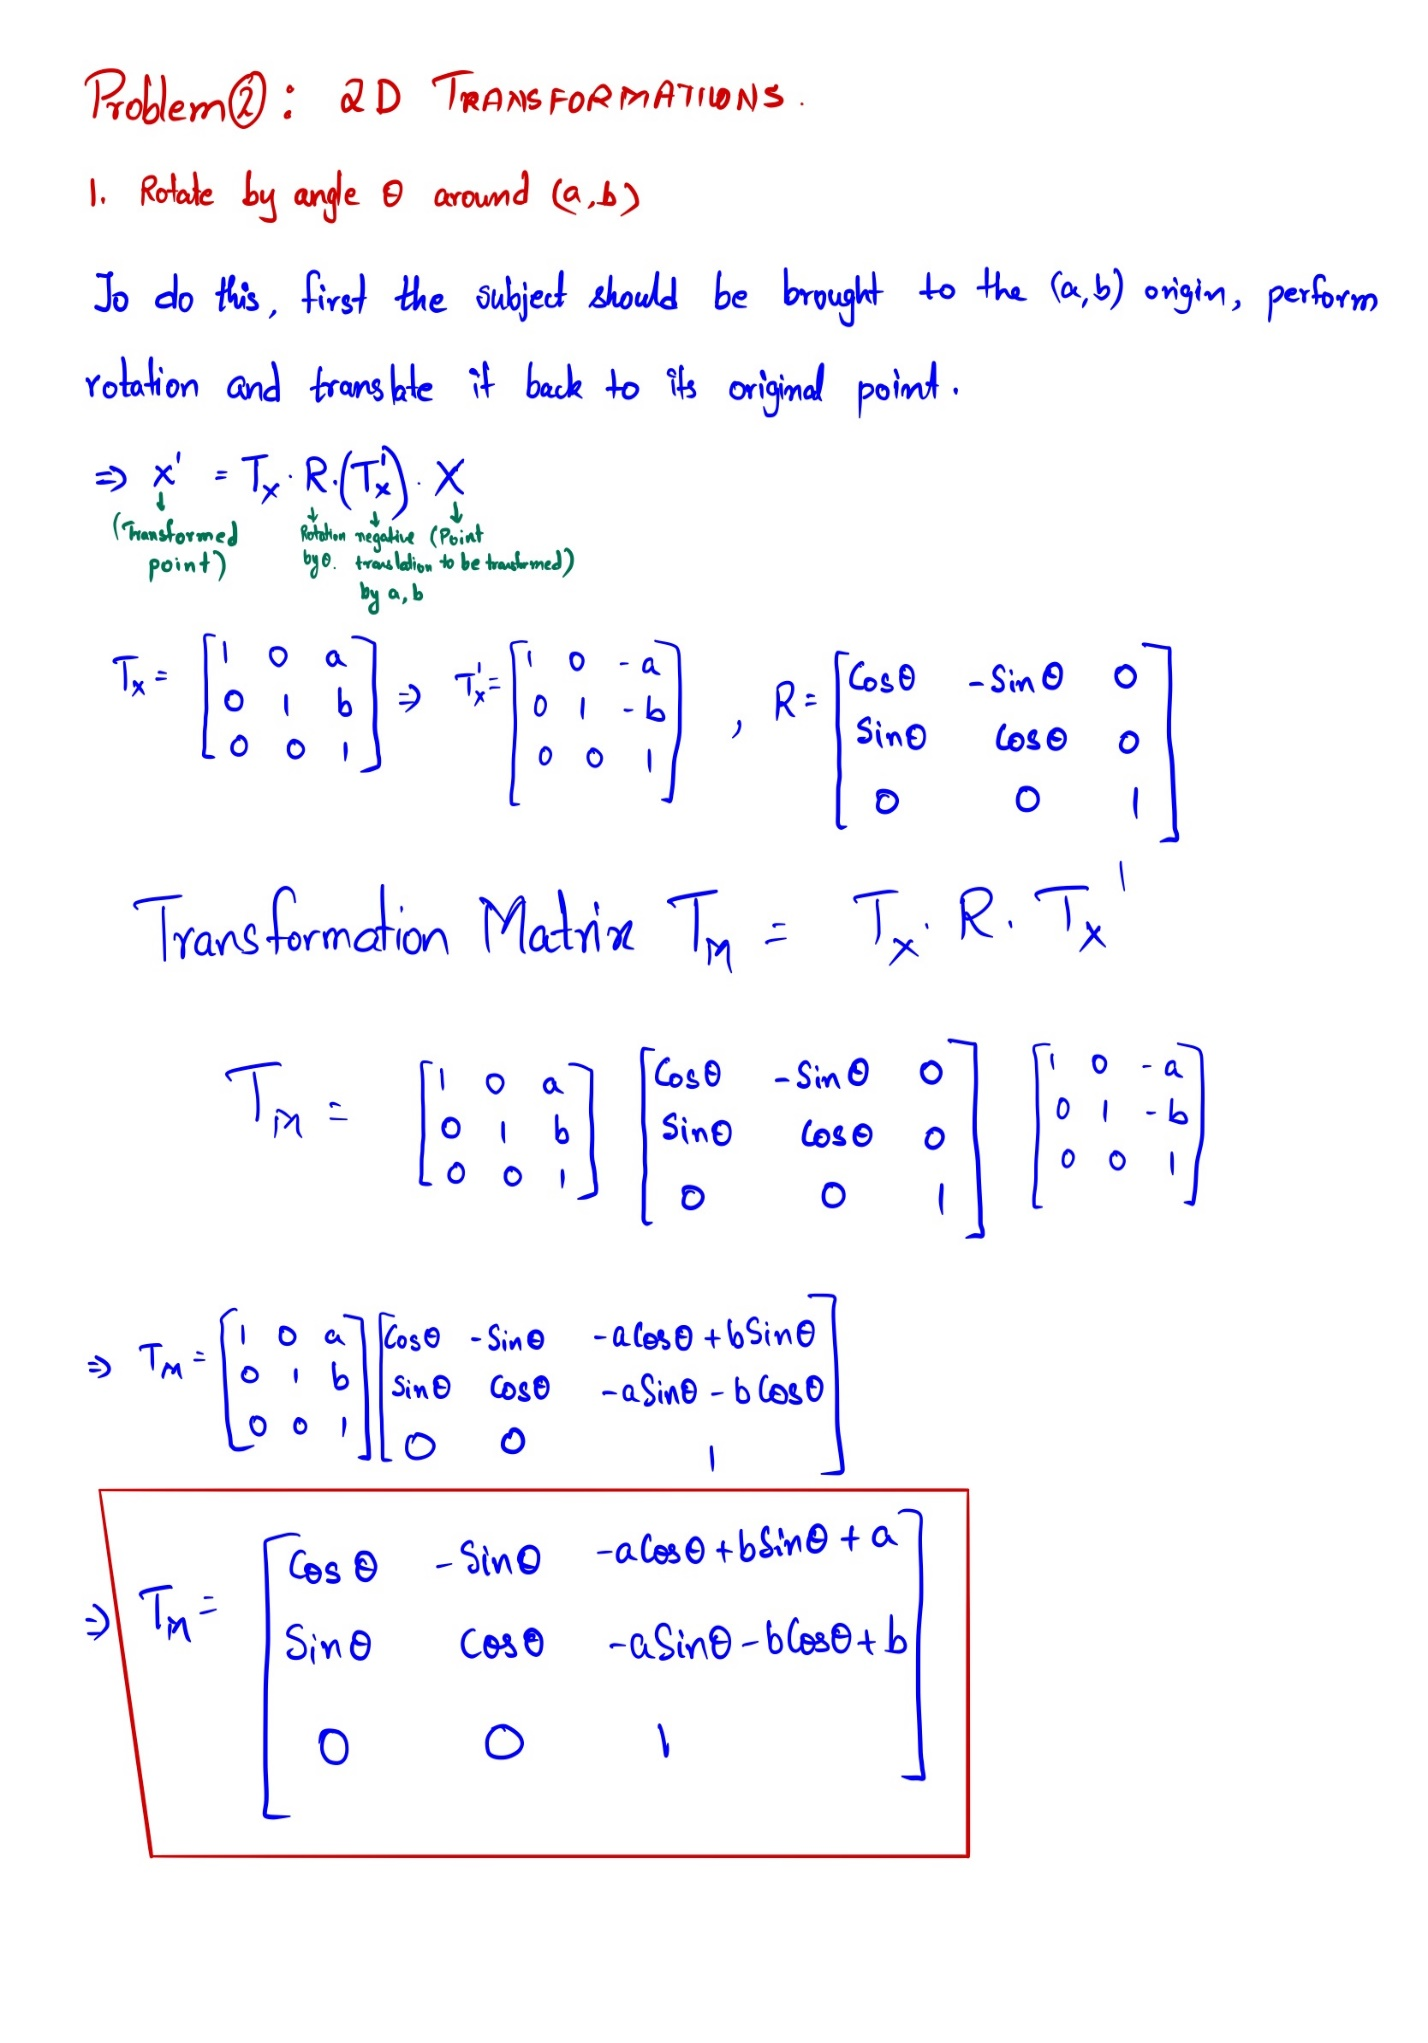 Problem②: 2D TRANSFORMATIONS.
1. Rotate by angle θ around (a,b)
To do this, first the subject should be brought to the (a,b) origin, perform
rotation and translate it back to its original point.
⇒ x' = Tx · R · (Tx') · X
↓ ↓ ↓ ↓
(Transformed point) Rotation by θ. negative translation by a, b (Point to be transformed)
Tx = [1 0 a; 0 1 b; 0 0 1] ⇒ Tx' = [1 0 -a; 0 1 -b; 0 0 1] , R = [Cosθ -Sinθ 0; Sinθ Cosθ 0; 0 0 1]
Transformation Matrix TM = Tx · R · Tx'
TM = [1 0 a; 0 1 b; 0 0 1] [Cosθ -Sinθ 0; Sinθ Cosθ 0; 0 0 1] [1 0 -a; 0 1 -b; 0 0 1]
⇒ TM = [1 0 a; 0 1 b; 0 0 1] [Cosθ -Sinθ -aCosθ+bSinθ; Sinθ Cosθ -aSinθ-bCosθ; 0 0 1]
⇒ TM = [Cosθ -Sinθ -aCosθ+bSinθ+a; Sinθ Cosθ -aSinθ-bCosθ+b; 0 0 1]